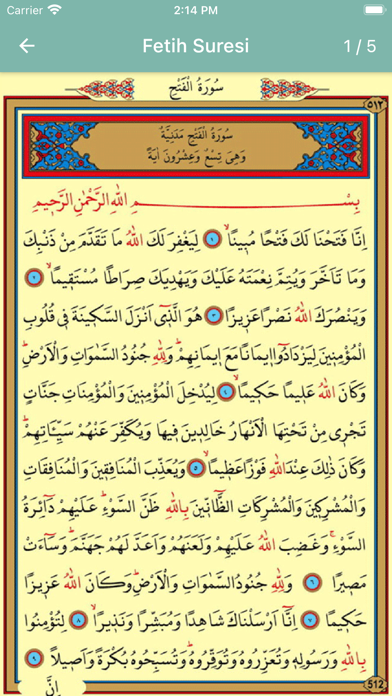 Carrier 2:14 PM
Fetih Suresi 1 / 5
سُورَةُ الْفَتْحِ
٥١٢
سُورَةُ الْفَتْحِ مَدَنِيَّةٌ
وَهِيَ تِسْعٌ وَعِشْرُونَ اٰيَةً
بِسْمِ اللهِ الرَّحْمٰنِ الرَّحٖيمِ
اِنَّا فَتَحْنَا لَكَ فَتْحًا مُبٖينًاۙ ١ لِيَغْفِرَ لَكَ اللهُ مَا تَقَدَّمَ مِنْ ذَنْبِكَ
وَمَا تَاَخَّرَ وَيُتِمَّ نِعْمَتَهُ عَلَيْكَ وَيَهْدِيَكَ صِرَاطًا مُسْتَقٖيمًاۙ ٢
وَيَنْصُرَكَ اللهُ نَصْرًا عَزٖيزًا ٣ هُوَ الَّذٖٓي اَنْزَلَ السَّكٖينَةَ فٖي قُلُوبِ
الْمُؤْمِنٖينَ لِيَزْدَادُٓوا اٖيمَانًا مَعَ اٖيمَانِهِمْؕ وَلِلّٰهِ جُنُودُ السَّمٰوَاتِ وَالْاَرْضِؕ
وَكَانَ اللهُ عَلٖيمًا حَكٖيمًاۙ ٤ لِيُدْخِلَ الْمُؤْمِنٖينَ وَالْمُؤْمِنَاتِ جَنَّاتٍ
تَجْرٖي مِنْ تَحْتِهَا الْاَنْهَارُ خَالِدٖينَ فٖيهَا وَيُكَفِّرَ عَنْهُمْ سَيِّـَٔاتِهِمْؕ
وَكَانَ ذٰلِكَ عِنْدَ اللهِ فَوْزًا عَظٖيمًاۙ ٥ وَيُعَذِّبَ الْمُنَافِقٖينَ وَالْمُنَافِقَاتِ
وَالْمُشْرِكٖينَ وَالْمُشْرِكَاتِ الظَّٓانّٖينَ بِاللهِ ظَنَّ السَّوْءِؕ عَلَيْهِمْ دَٓائِرَةُ
السَّوْءِۚ وَغَضِبَ اللهُ عَلَيْهِمْ وَلَعَنَهُمْ وَاَعَدَّ لَهُمْ جَهَنَّمَؕ وَسَٓاءَتْ
مَصٖيرًا ٦ وَلِلّٰهِ جُنُودُ السَّمٰوَاتِ وَالْاَرْضِؕ وَكَانَ اللهُ عَزٖيزًا
حَكٖيمًا ٧ اِنَّٓا اَرْسَلْنَاكَ شَاهِدًا وَمُبَشِّرًا وَنَذٖيرًاۙ ٨ لِتُؤْمِنُوا
بِاللهِ وَرَسُولِهٖ وَتُعَزِّرُوهُ وَتُوَقِّرُوهُؕ وَتُسَبِّحُوهُ بُكْرَةً وَاَصٖيلًا ٩
اِنَّ 512